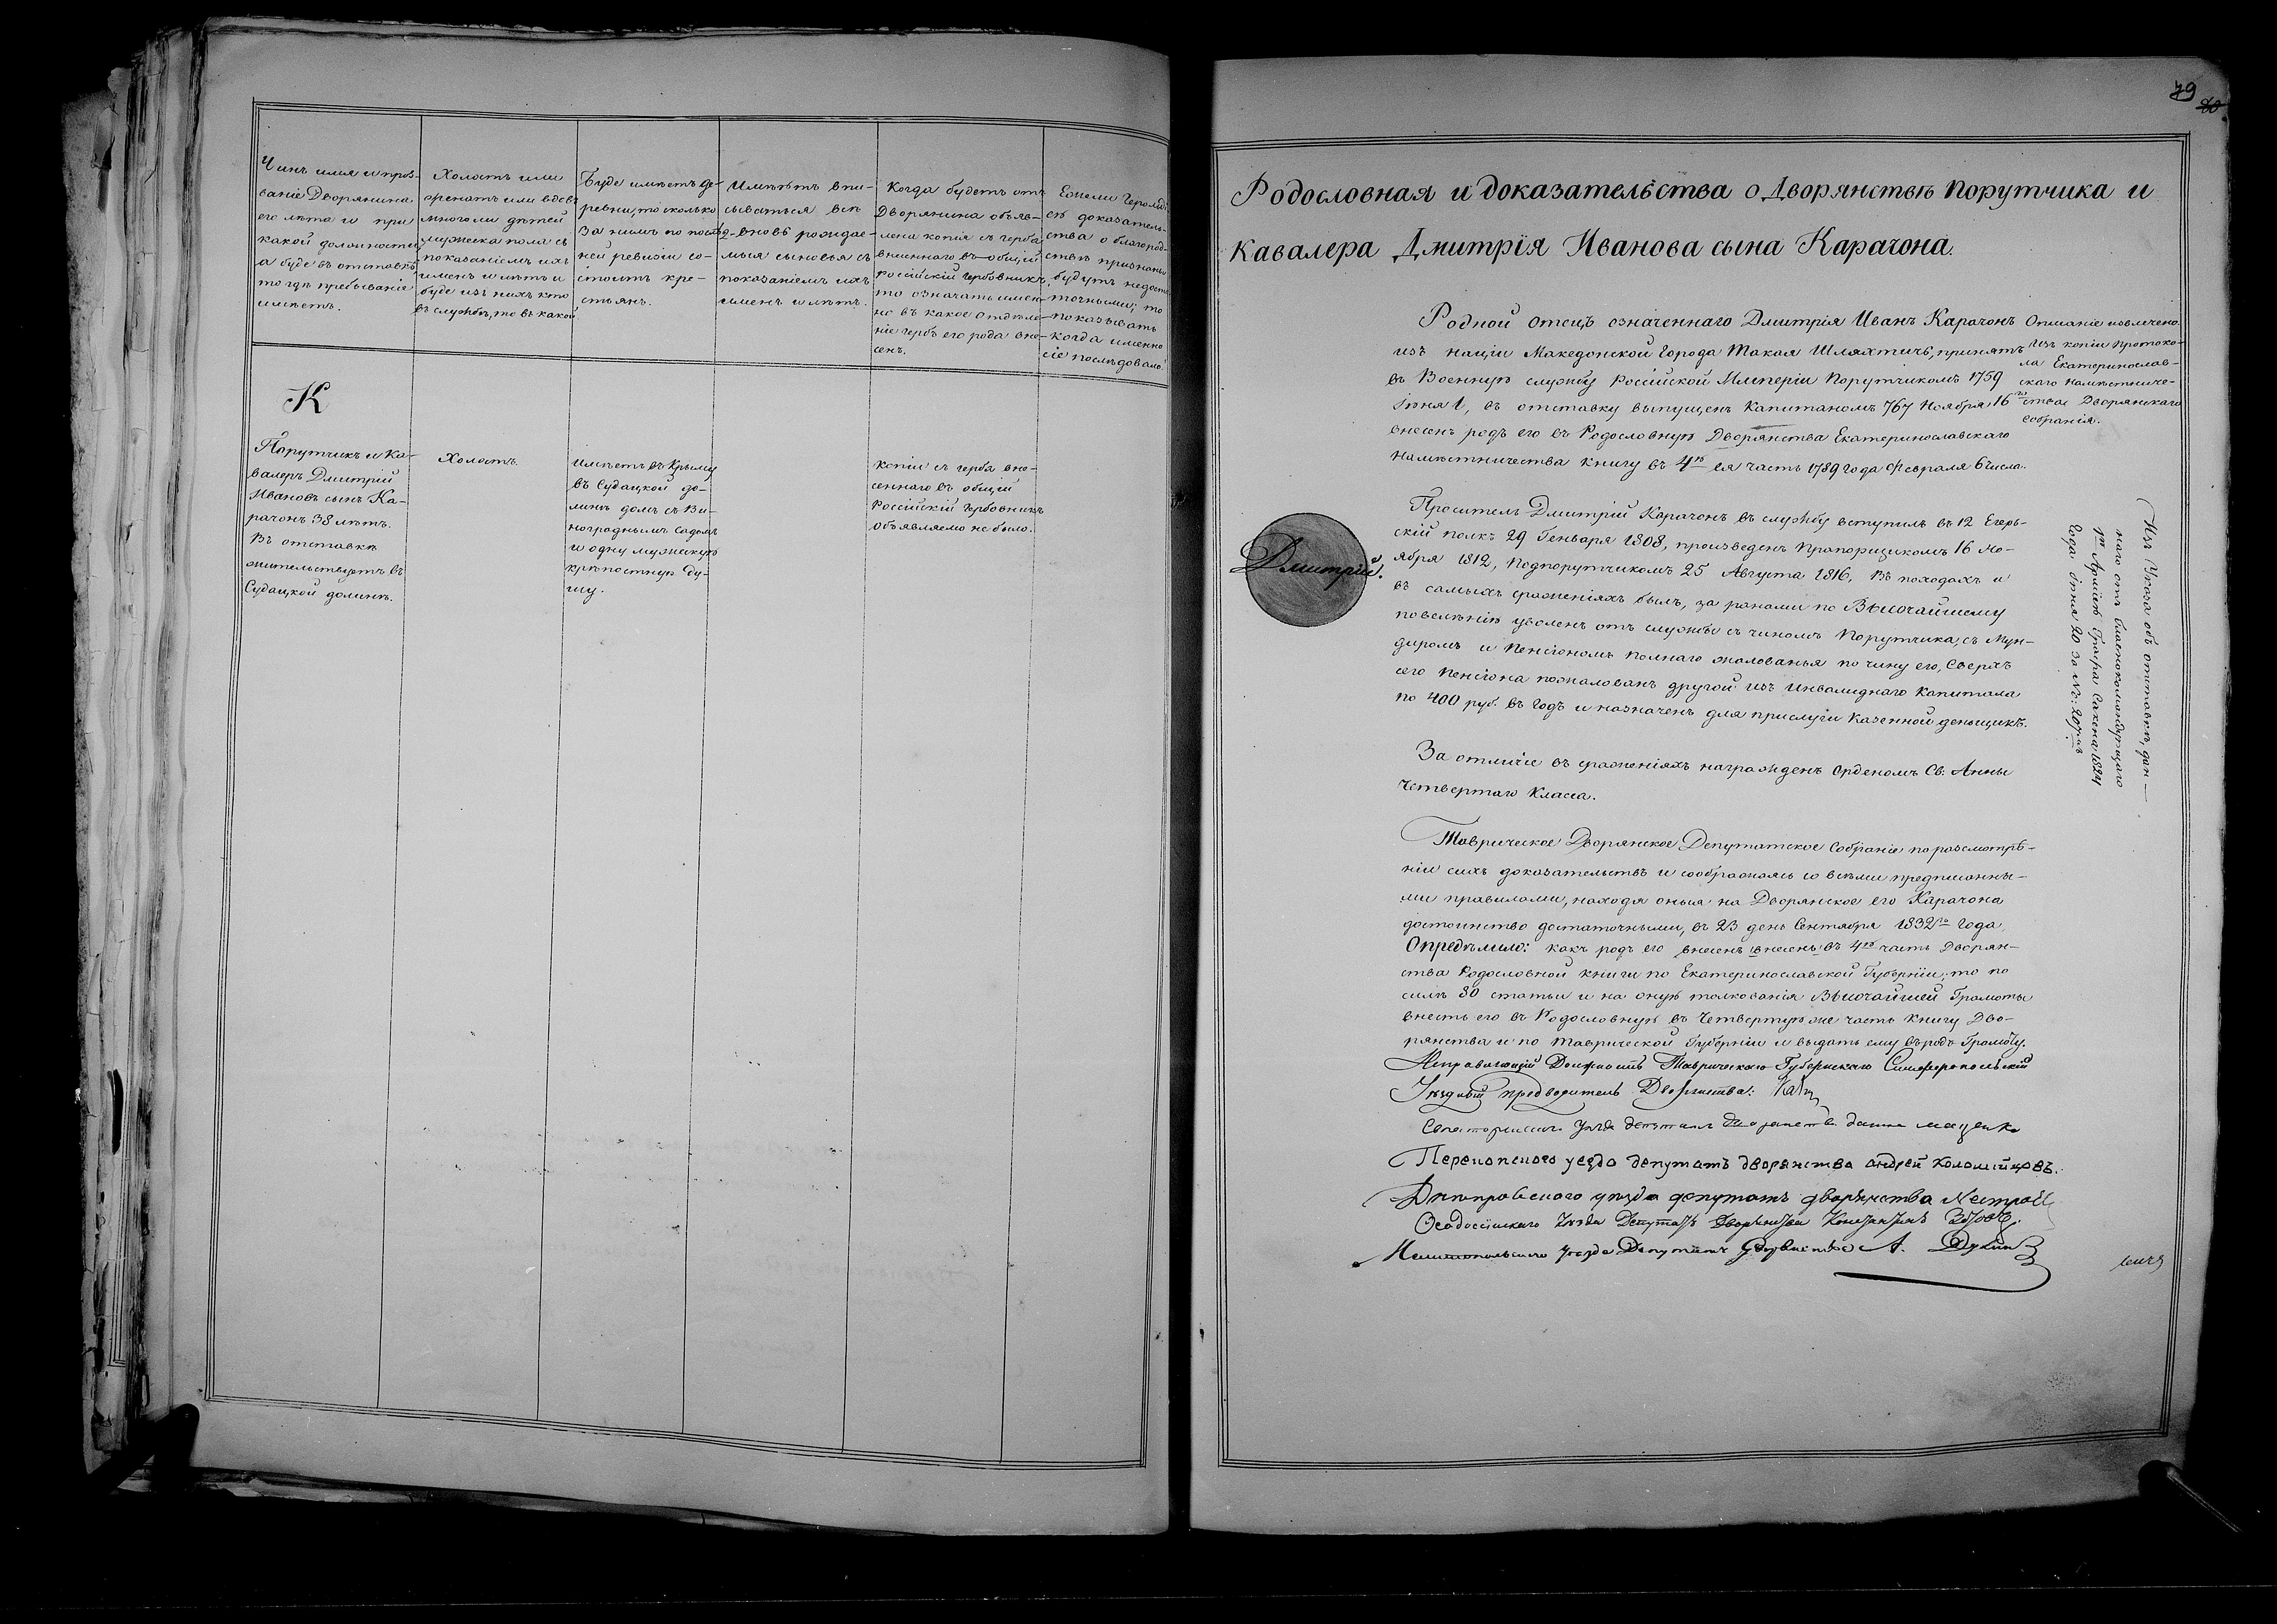 Чинъ имя и проз-
ваніе Дворянина
его лѣта и при
какой должности,
а буде въ отставкѣ
то гдѣ пребываніе
имѣетъ.
Холостъ или
женатъ или вдовъ
много ли дѣтей
мужеска пола съ
показаніемъ ихъ
именъ и лѣтъ и
буде изъ нихъ кто
въ службѣ, то въ какой
Буде имѣетъ де-
ревни, то сколько
за нимъ по послѣд-
ней ревизіи со-
стоитъ кре-
стьянъ.
Имѣютъ впи-
сываться всѣ
вновь рождае-
мыя сыновья съ
показаніемъ ихъ
именъ и лѣтъ.
Когда будетъ отъ
Дворянина объяв-
лена копія съ герба
внесеннаго въ общій
Россійскій Гербовникъ,
то означать имен-
но въ какое отдѣле-
ніе гербъ его рода вне-
сенъ.
Ежели Герольдіи
доказатель-
ства о благород-
ствѣ признаны
будутъ недоста-
точными; то
показывать
когда именно
сіе послѣдовало.
К
Порутчикъ и Ка-
валеръ Дмитрій
Ивановъ сынъ Ка-
рачонъ 38 лѣтъ.
Въ отставкѣ
жительствуетъ въ
Судацкой долинѣ.
Холостъ.
Имѣетъ въ Крыму
въ Судацкой до-
линѣ домъ съ Ви-
нограднымъ садомъ
и одну мужескую
крѣпостную ду-
шу.
Копіи съ герба вне-
сеннаго въ общій
Россійскій Гербовникъ
объявляемо не было.
79
80
Родословная и доказательства о Дворянствѣ Порутчика и
Кавалера Дмитрія Иванова сына Карачона.
Родной отецъ означеннаго Дмитрія Иванъ Карачонъ
изъ націи Македонской города Макая Шляхтичь, принятъ
въ Военную службу Россійской Имперіи Порутчикомъ 1759
Іюня 1, въ отставку выпущенъ Капитаномъ 767 Ноября 16го
внесенъ родъ его въ Родословную Дворянства Екатеринославскаго
Намѣстничества книгу въ 4ю ея часть 1789 года февраля 6 числа.
Описаніе извлечено
изъ копіи протоко-
ла Екатеринослав-
скаго Намѣстниче-
ства Дворянскаго
собранія.
Дмитрій.
Проситель Дмитрій Карачонъ въ службу вступилъ въ 12 Егерь-
скій полкъ 29 Генваря 1808, произведенъ Прапорщикомъ 16 Но-
ября 1812, Подпорутчикомъ 25 Августа 1816, Въ походахъ и
въ самыхъ сраженіяхъ былъ, за ранами по Высочайшему
повелѣнію уволенъ отъ службы съ чиномъ Порутчика, съ Мун-
диромъ и Пенсіономъ полнаго жалованья по чину его, Сверхъ
сего Пенсіона пожалованъ другой изъ инвалиднаго Капитала
по 400 руб. въ годъ и назначенъ для прислуги казенной деньщикъ.
Изъ Указа объ отставкѣ, дан-
наго отъ Главнокомандующаго
1ю Арміею Графа Сакена 1824
Года Іюня 20 за №:
За отличіе въ сраженіяхъ награжденъ Орденомъ Св: Анны
Четвертаго Класса.
Таврическое Дворянское Депутатское Собраніе по разсмотрѣ-
ніи сихъ доказательствъ и соображаясь со всѣми предписанны-
ми правилами, находя оныя на Дворянское его Карачона
достоинство достаточными, въ 23 день Сентября 1832го года,
Опредѣлило: какъ родъ его внесенъ внесенъ въ 4ю часть Дворян-
ства Родословной книги по Екатеринославской Губерніи, то по
силѣ 80 статьи и на оную толкованія Высочайшей Грамоты
внесть его въ Родословную въ Четвертую же часть книгу Дво-
рянства и по Таврической Губерніи и выдать ему въ родъ Грамоту.
Исправляющій Должность Таврическаго Губернскаго Симферопольскій
Уѣздный предводитель Дворянства:
депутатъ дворянства
Перекопскаго уезда депутатъ дворянства андрей коломийцовъ.
Днепровскаго уѣзда депутатъ дворянства
Феодосійскаго Уѣзда Депутатъ Дворянства
Мелитопольскаго уезда Депутатъ Дворянства А.